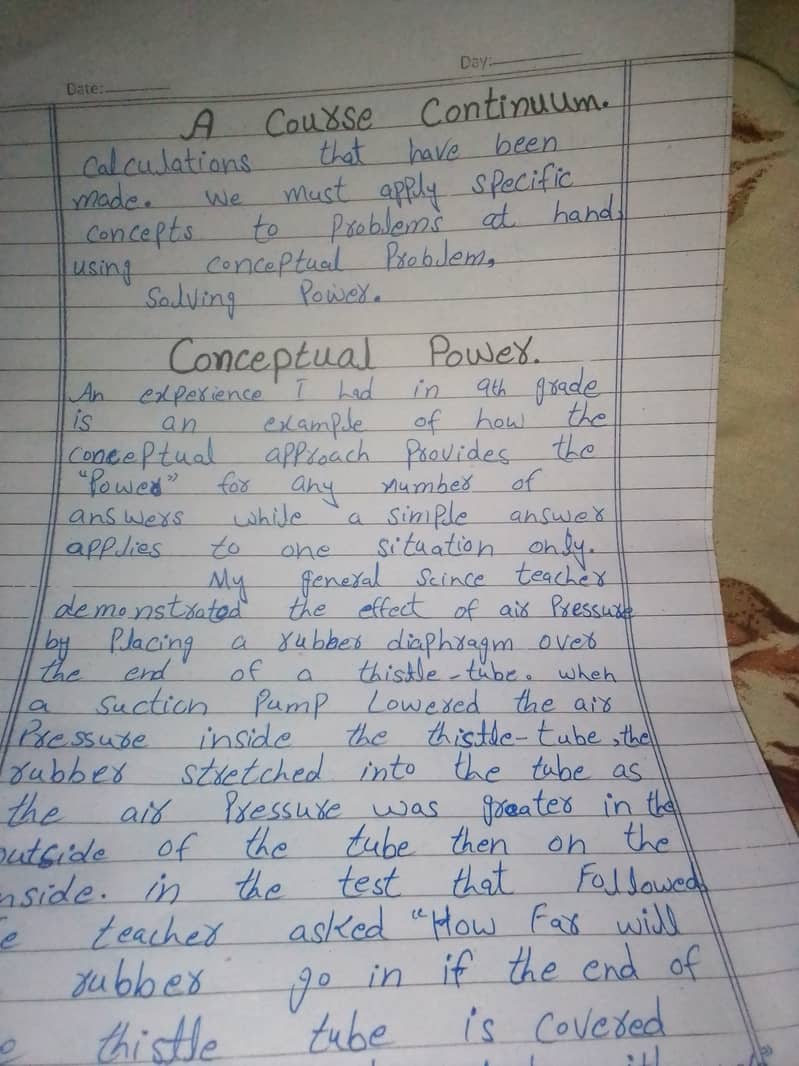 Day:
Date:
A Course Continuum.
Calculations that have been
made. We must apply specific
concepts to problems at hand,
using conceptual Problem,
Solving Power.
Conceptual Power.
An experience I had in 9th grade
is an example of how the
conceptual approach Provides the
"Power" for any number of
answers while a simple answer
applies to one situation only.
My general Scince teacher
demonstrated the effect of air Pressure
by Placing a rubber diaphragm over
the end of a thistle-tube. when
a suction Pump Lowered the air
Pressure inside the thistle-tube, the
rubber stretched into the tube as
the air Pressure was greater in the
outside of the tube then on the
nside. in the test that Followed
e teacher asked "How Far will
rubber go in if the end of
e thistle tube is covered